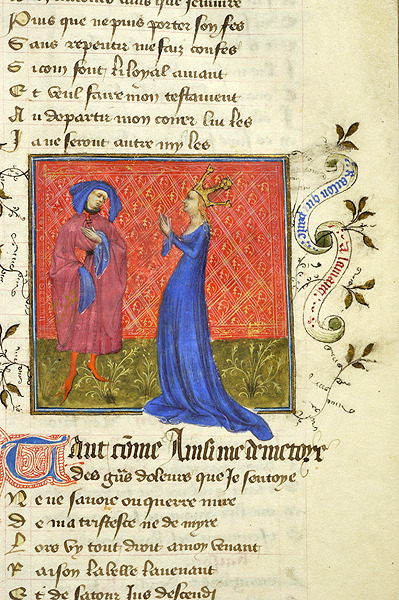 Puis que ne puis porter son fes
Sans repentir me confes
Si com font li loyal amant
Et veul faire mon testament
Au departir mon cuer lui les
Ja ne seront autre my les
Raison qui parle
a lamant
Tant cõme Ainsi me demetoie
des gñs doleurs que Je sentoye
Ne ne savoie ou querre mire
de ma tristesce ne de myre
Lors vy tout droit a moy venant
Raison la belle lavenant
Et de sa tour Jus descendi